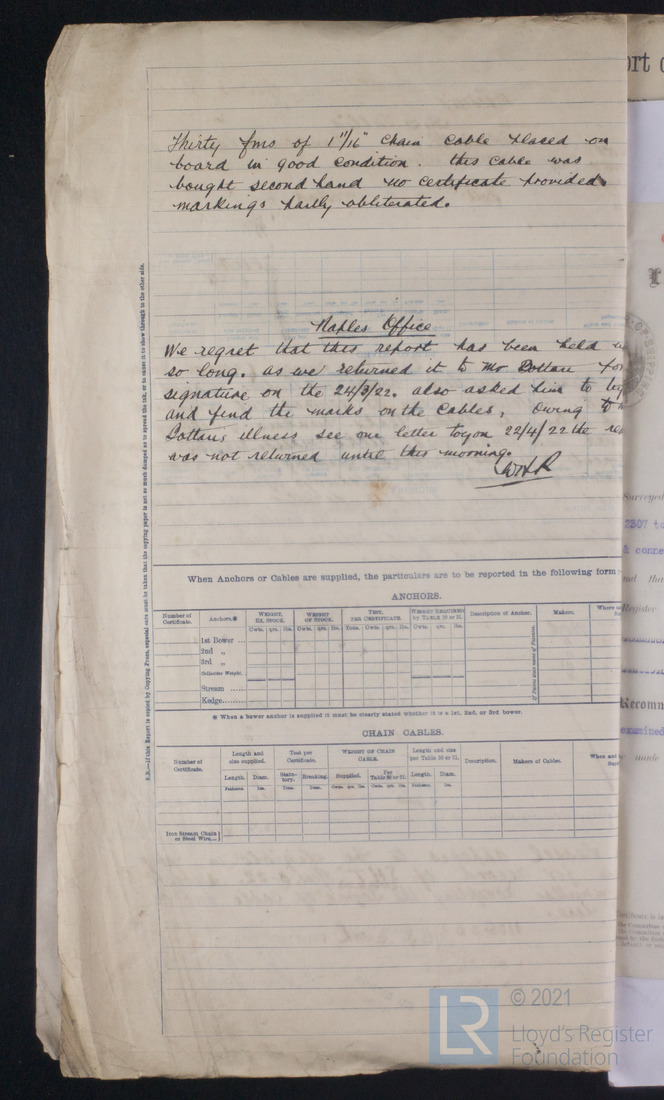 Thirty fms of 1 11/16" chain cable placed on
board in good condition. this cable was
bought second hand no certificate provided
markings partly obliterated.
Naples Office
We regret that this report has been held u
so long. as we returned it to Mr for
signature on the 24/3/22. also asked him to try
and find the marks on the cables, owing to
illness see our letter to you 22/4/22 the re
was not returned until this morning.
WHR
N.B.—If this Report is copied by Copying Press, especial care must be taken that the copying paper is not so much damped as to spread the ink, or to cause it to show through to the other side.
When Anchors or Cables are supplied, the particulars are to be reported in the following form
ANCHORS.
Number of Certificate. Anchors.* WEIGHT, EX. STOCK. WEIGHT OF STOCK. TEST, PER CERTIFICATE. WEIGHT REQUIRED by TABLE 30 or 31. Description of Anchor. Makers. Where
Cwts. qrs. lbs. Cwts. qrs. lbs. Tons. Cwts. qrs. lbs. Cwts. qrs. lbs.
1st Bower ...
2nd „
3rd „
Collective Weight.
Stream ......
Kedge........
* When a bower anchor is supplied it must be clearly stated whether it is a 1st, 2nd, or 3rd bower.
CHAIN CABLES.
Number of Certificate. Length and size supplied. Test per Certificate. WEIGHT OF CHAIN CABLE. Length and size per Table 30 or 31. Description. Makers of Cables. When and
Length. Diam. Statutory. Breaking. Supplied. Per Table 30 or 31. Length. Diam.
Fathoms. Ins. Tons. Tons. Cwts. qrs. lbs. Cwts. qrs. lbs. Fathoms. Ins.
Iron Stream Chain or Steel Wire...
ort o
Surveyed
2307 to
& conne
nd tha
Register
Recomm
examined
made
© 2021
Lloyd's Register
Foundation
LR